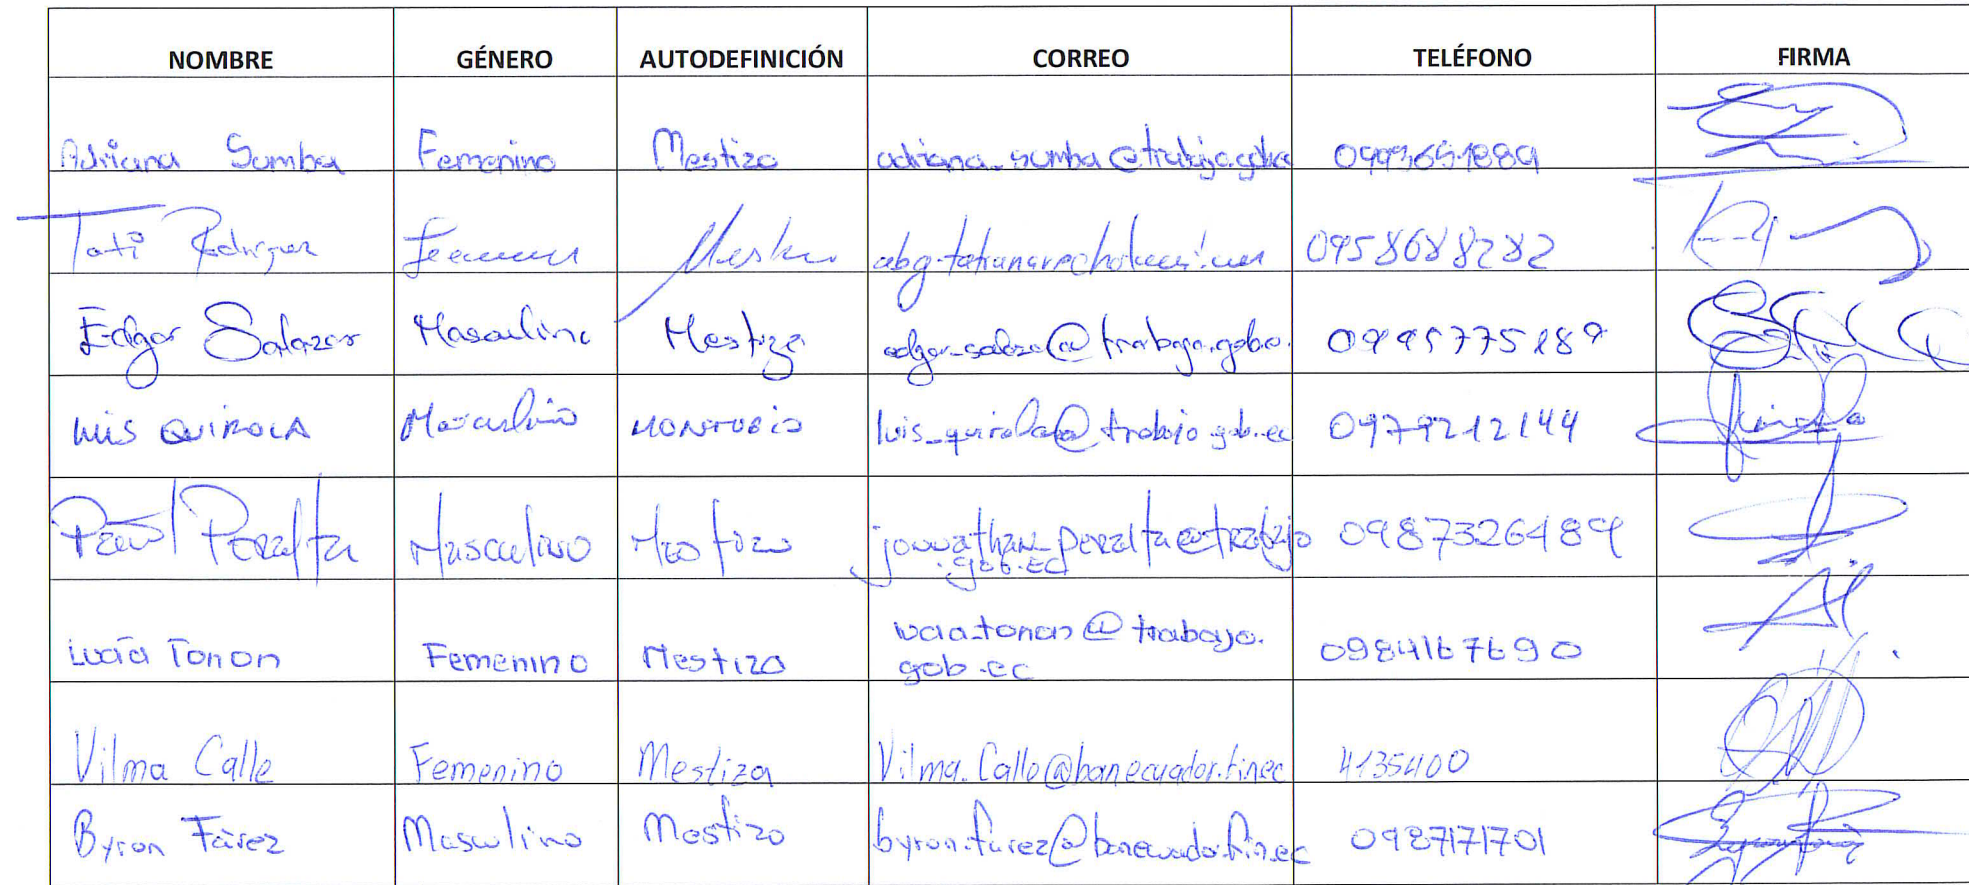 NOMBRE GÉNERO AUTODEFINICIÓN CORREO TELÉFONO FIRMA
Adriana Sumba Femenino Mestiza adriana_sumba@trabajo.gob.ec
Tati Rodriguez 0958688282
Edgar Salazar Masculino Mestizo 0995775189
Luis QUIROLA Masculino MONTUBIO luis_quirola@trabajo.gob.ec 0979212144
Paúl Peralta Masculino jonnathan_peralta@trabajo 0987326489
.gob.ec
Lucía Tonon Femenino Mestiza lucia_tonon@trabajo. 0984167690
gob.ec
Vilma Calle Femenino Mestiza Vilma.Calle@banecuador.fin.ec 4135400
Byron Fárez Masculino Mestizo byron.farez@banecuador.fin.ec 0987171701